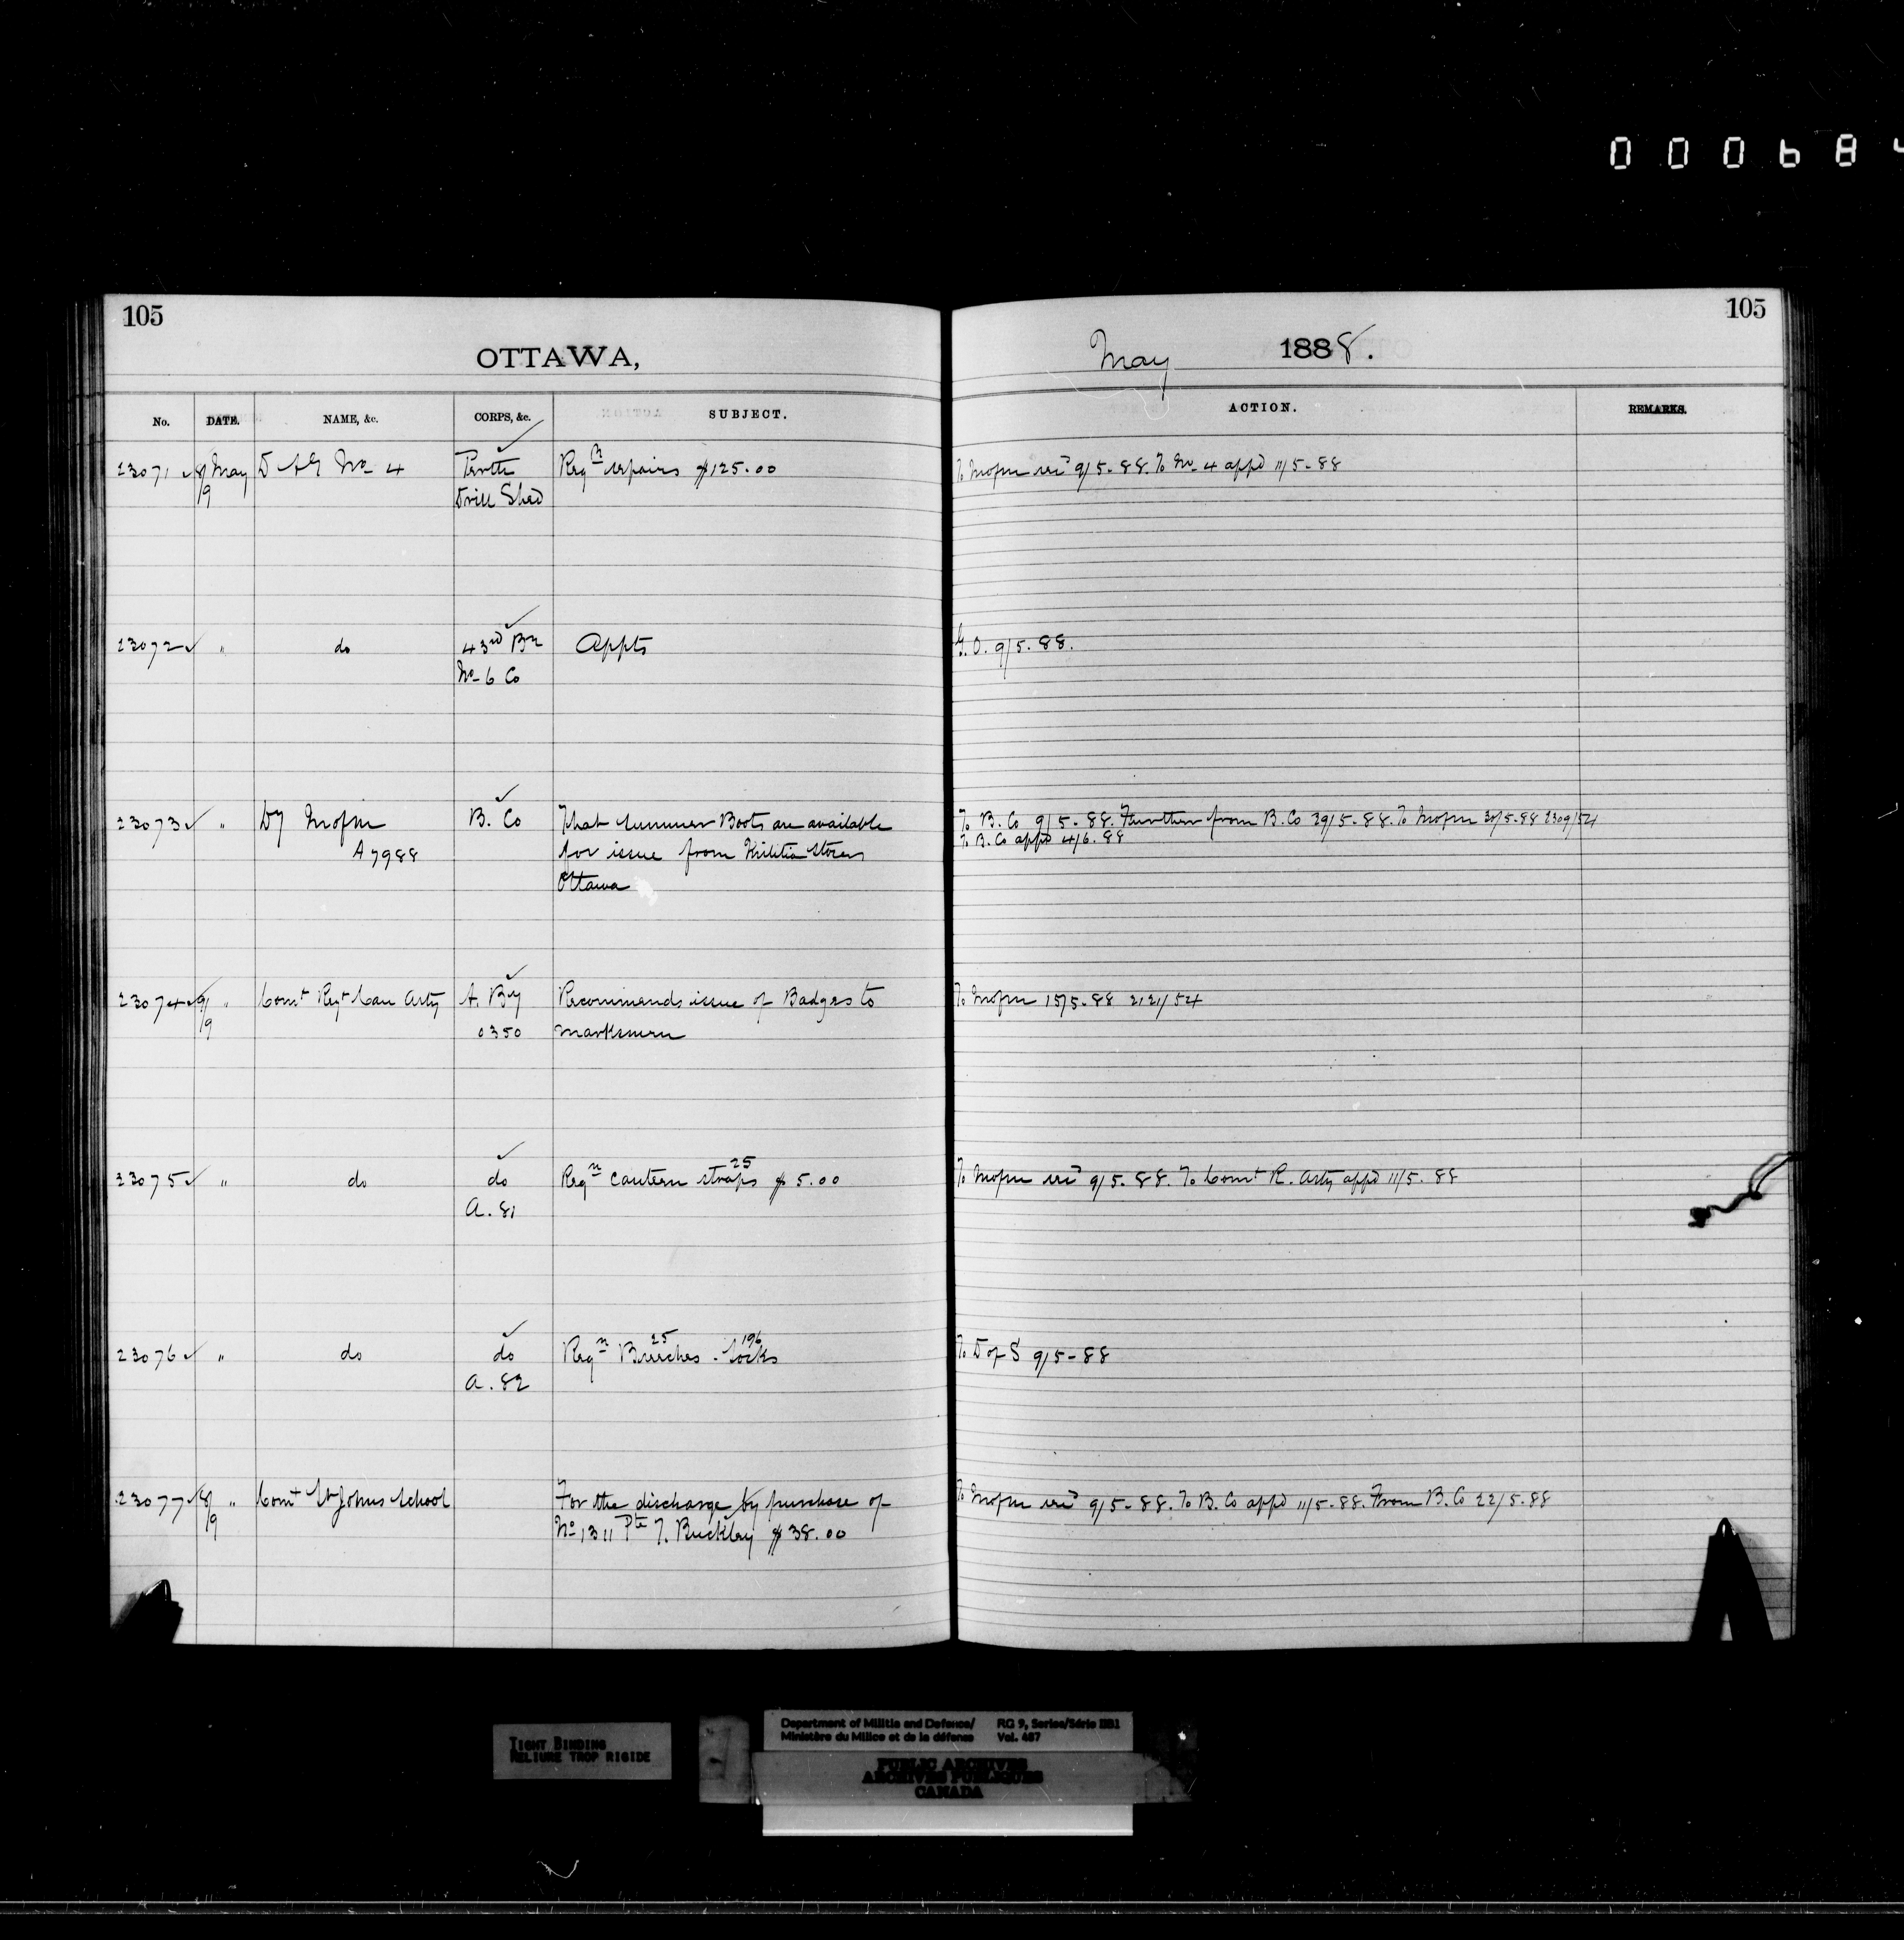 000684
105
OTTAWA,
No. DATE. NAME, &c. CORPS, &c. SUBJECT.
23071 8/9 May D A G No 4 Perth Reqn repairs $125.00
Drill Shed
23072 " do 43rd Bn Appts
No 6 Co
23073 " Dy B. Co That summer Boots are available
A7988 for issue from Militia Stores
Ottawa
23074 9/9 " Comt Regt Can Arty A. By Recommends issue of Badges to
0350 marksmen
23075 " do do Reqn canteen straps 25 $5.00
A. 81
23076 " do do Reqn Breeches 25 - Socks 196
A. 82
23077 8/9 " Comt St Johns School For the discharge by purchase of
No 1311 Pte T. Buckley $38.00
105
May 1888.
ACTION. REMARKS.
To 9/5-88. To No 4 appd 11/5-88
G.O. 9/5.88.
To B. Co 9/5-88. Further from B. Co 29/5-88. To 30/5-88 2309/54
To B. Co appd 4/6.88
To 15/5-88 2121/54
To 9/5-88. To Comt R. Arty appd 11/5-88
To D of S 9/5-88
To 9/5-88. To B. Co appd 11/5-88. From B. Co 22/5.88
TIGHT BINDING
RELIURE TROP RIGIDE
Department of Militia and Defence/ RG 9, Series/Série IIB1
Ministère du Milice et de la défense Vol. 487
PUBLIC ARCHIVES
ARCHIVES PUBLIQUES
CANADA